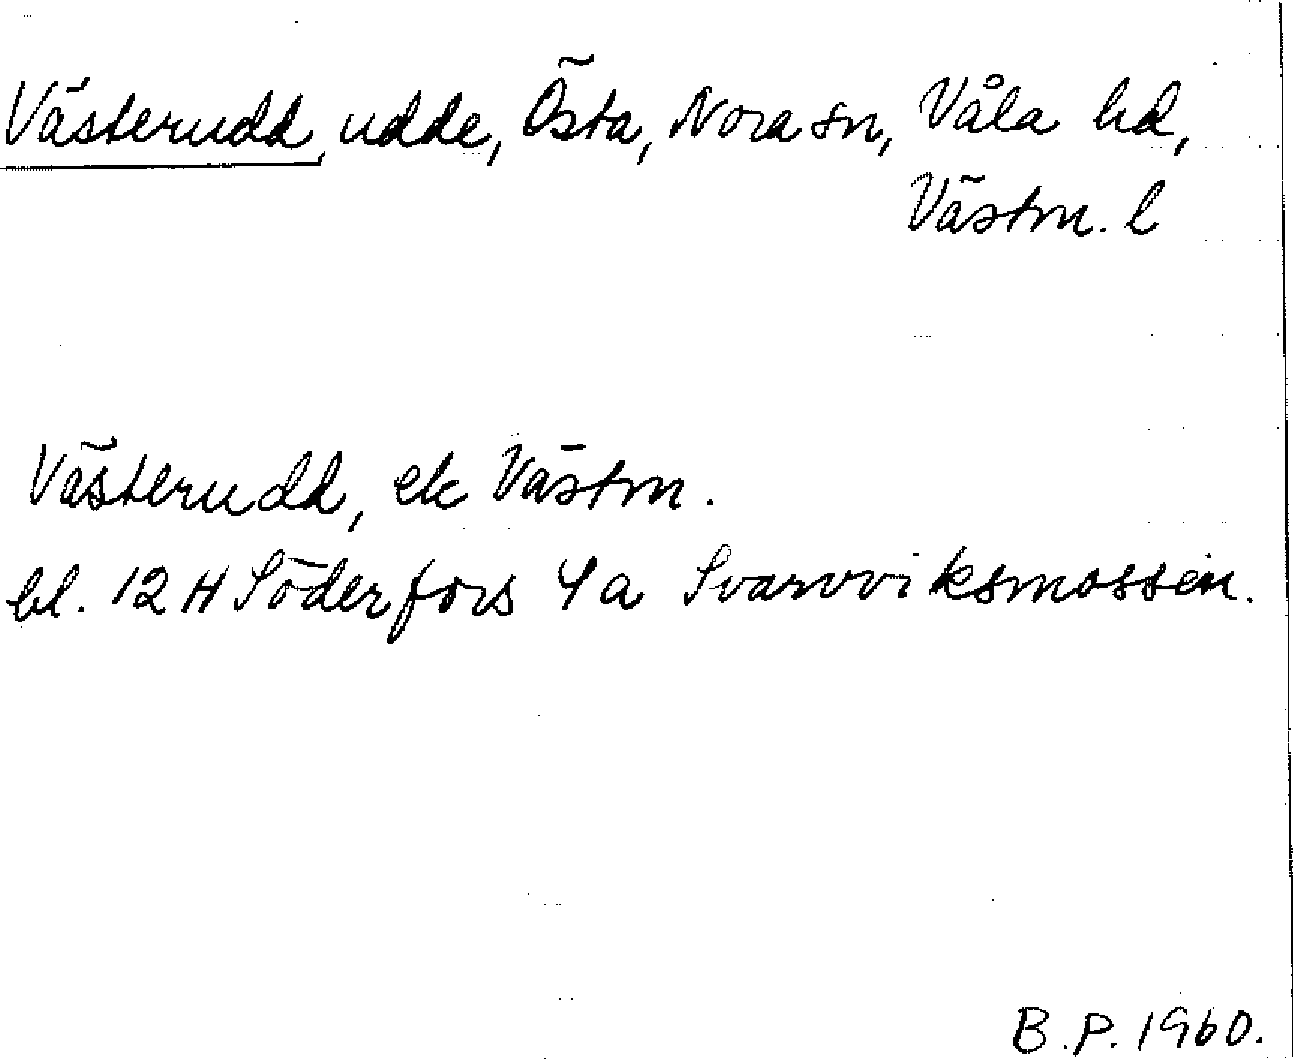 Västerudd, udde, Östa, Nora sn, Våla hd,
Västm. l
Västerudd, ek Västm.
bl. 12 H Söderfors 4 a Svarvviksmossen.
B.P. 1960.